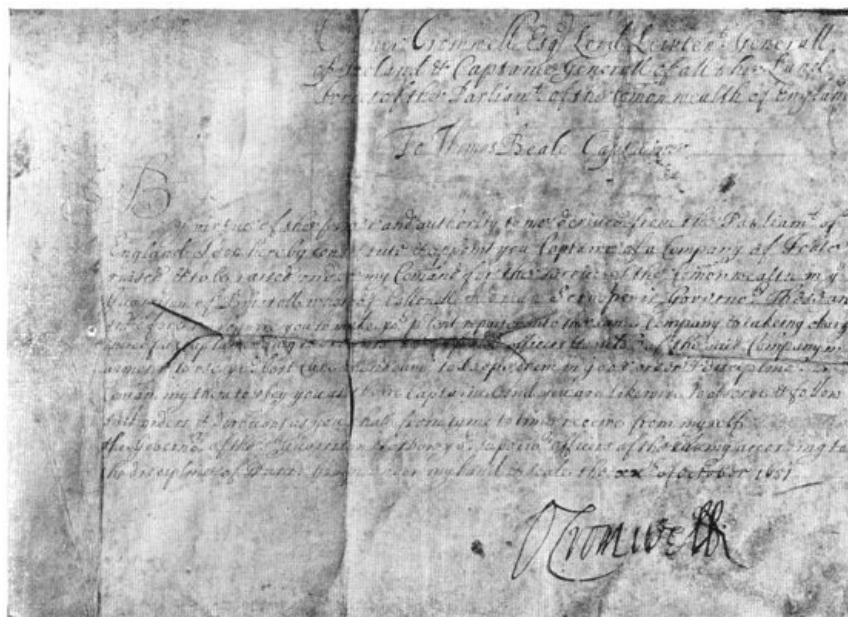 Cromwell Esqr Lord Lieutent Generall
of Ireland & Captaine Generall of all the Land
forces of the Parliamt of the Comon wealth of England
To Thomas Beale Captaine
By virtue of the power and authority to me derived from the Parliamt of
England I doe hereby constitute & appoint you Captaine of a Company of Foote
raised & to be raised under my Comand for the service of the Comon wealth in ye
Garrison of of Collonell Adrian Scroope is Governor These are
you to make yor repaire unto the same Company & takeing charge
officers of the said Company in
armes & to use yor best to keepe them in good order & discipline
Comanding them to obey you as their Captaine And you are likewise to observe & follow
such orders & directions as you shall from time to time receive from myself
the Governor of the Garrison & officers of the army according to
the discipline of Warre Given under my hand & Seale the xxth of October 1651
O Cromwell